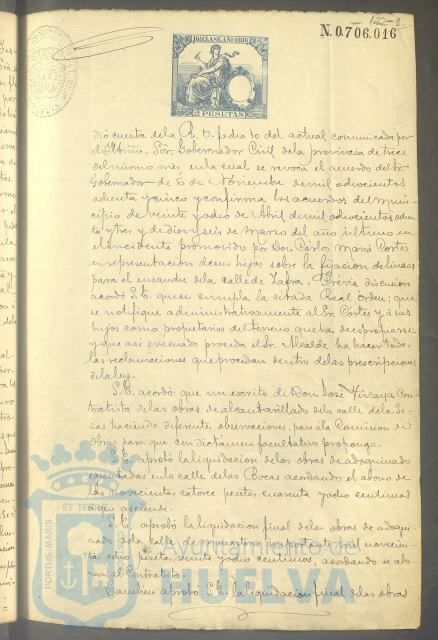 122-2
N. 0.706.016
10ª CLASE AÑO 1886
2 PESETAS
dio cuenta de la R. O. fecha 10 del actual comunicada por
el Iltmo. Sor. Gobernador Civil de la provincia de trece
del mismo mes, en la cual se revoca el acuerdo del Sr.
Gobernador de 6 de Noviembre de mil ochocientos
ochenta y cinco y confirma los acuerdos del Muni-
cipio de veinte y ocho de Abril de mil ochocientos ochen-
ta y tres y de diez y seis de Marzo del año último en
el incidente promovido por Don Carlos María Cortes
en representacion de sus hijos sobre la fijacion de lineas
para el ensanche de la calle de Zafra. Prévia discusion
acordó S. E. que se cumpla la citada Real Orden; que
se notifique administrativamente al Sr. Cortes y á sus
hijos como propietarios del terreno que ha de espropiarse
y que asi evacuado proceda el Sr. Alcalde ha hacer todas
las reclamaciones que procedan dentro de las prescripciones
de la ley.
S. E. acordó: que un escrito de Don José Vizcaya Con-
tratista de las obras de alcantarillado de la calle de la
haciendo diferentes observaciones, pase á la Comision de
Obras para que con dictamen facultativo proponga.
S. E. aprobó la liquidacion de las obras de adoquinado
ejecutadas en la calle de las Bocas acordando el abono de
las novecientas catorce pesetas, cuarenta y ocho centimos
á que asciende.
S. E. aprobó la liquidacion final de las obras de adoqui-
nado de la calle de importante mil novecien-
tas ocho pesetas veinte y ocho centimos, acordando se abo-
nen al Contratista.
Tambien aprobó S. E. la liquidacion final de las obras
PORTUS MARIS ET TERRAE
Ayuntamiento de
HUELVA